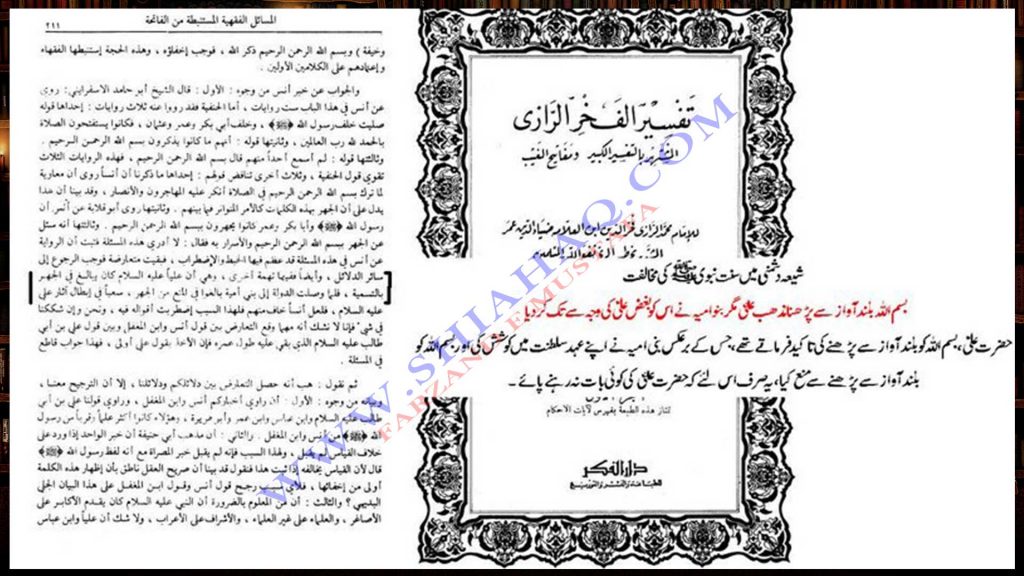 المسائل الفقهية المستنبطة من الفاتحة
٢١١
وخيفة ) وبسم الله الرحمن الرحيم ذكر الله ، فوجب إخفاؤه ، وهذه الحجة إستنبطها الفقهاء
وإعتمادهم على الكلامين الأولين .
والجواب عن خبر أنس من وجوه : الأول : قال الشيخ أبو حامد الاسفرايني : روي
عن أنس في هذا الباب ست روايات ، أما الحنفية فقد رووا عنه ثلاث روايات : إحداها قوله
صليت خلف رسول الله ﷺ ، وخلف أبي بكر وعمر وعثمان ، فكانوا يستفتحون الصلاة
بالحمد لله رب العالمين ، وثانيتها قوله : أنهم ما كانوا يذكرون بسم الله الرحمن الرحيم .
وثالثتها قوله : لم أسمع أحداً منهم قال بسم الله الرحمن الرحيم ، فهذه الروايات الثلاث
تقوي قول الحنفية ، وثلاث أخرى تناقض قولهم : إحداها ما ذكرنا أن أنساً روى أن معاوية
لما ترك بسم الله الرحمن الرحيم في الصلاة أنكر عليه المهاجرون والأنصار ، وقد بينا أن هذا
يدل على أن الجهر بهذه الكلمات كالأمر المتواتر فيما بينهم . وثانيتها روى أبو قلابة عن أنس أن
رسول الله ﷺ وأبا بكر وعمر كانوا يجهرون ببسم الله الرحمن الرحيم . وثالثتها أنه سئل
عن الجهر ببسم الله الرحمن الرحيم والأسرار به فقال : لا أدري هذه المسئلة فثبت أن الرواية
عن أنس في هذه المسئلة قد عظم فيها الخبط والإضطراب ، فبقيت متعارضة فوجب الرجوع إلى
سائر الدلائل ، وأيضاً ففيها تهمة أخرى ، وهي أن علياً عليه السلام كان يبالغ في الجهر
بالتسمية ، فلما وصلت الدولة إلى بني أمية بالغوا في المنع من الجهر ، سعياً في إبطال آثار علي
عليه السلام ، فلعل أنساً خاف منهم فلهذا السبب إضطربت أقواله فيه ، ونحن وإن شككنا
في شيء فإنا لا نشك أنه مهما وقع التعارض بين قول أنس وابن المغفل وبين قول علي بن أبي
طالب عليه السلام الذي بقي عليه طول عمره فإن الأخذ بقول علي أولى ، فهذا جواب قاطع في
المسئلة .
ثم نقول : هب أنه حصل التعارض بين دلائلكم ودلائلنا ، إلا أن الترجيح معنا ،
وبيانه من وجوه : الأول : أن راوي أخباركم أنس وابن المغفل ، وراوي قولنا علي بن أبي
طالب عليه السلام وابن عباس وابن عمر وأبو هريرة ، وهؤلاء كانوا أكثر علماً وقرباً من رسول
الله ﷺ من أنس وابن المغفل . والثاني : أن مذهب أبي حنيفة أن خبر الواحد إذا ورد على
خلاف القياس لم يقبل ، ولهذا السبب فإنه لم يقبل خبر المصراة مع أنه لفظ رسول الله ﷺ
قال لأن القياس يخالفه إذا ثبت هذا فنقول قد بينا أن صريح العقل ناطق بأن إظهار هذه الكلمة
أولى من إخفائها ، فلأي سبب رجح قول أنس وقول ابن المغفل على هذا البيان الجلي
البديهي ؟ والثالث : أن من المعلوم بالضرورة أن النبي عليه السلام كان يقدم الأكابر على
الأصاغر ، والعلماء على غير العلماء ، والأشراف على الأعراب ، ولا شك أن علياً وابن عباس
تفسير الفخر الرازي
المشتهر بالتفسير الكبير ومفاتيح الغيب
للإمام محمد الرازي فخر الدين ابن العلامة ضياء الدين عمر
شیعہ دشمنی میں سنت نبوی ﷺ کی مخالفت
بسم اللہ بلند آواز سے پڑھنا مذھب علی مگر بنو امیہ نے اس کو بغض علی کی وجہ سے ترک کر دیا
حضرت علی ، بسم اللہ کو بلند آواز سے پڑھنے کی تاکید فرماتے تھے ، جس کے برعکس بنی امیہ نے اپنے عہد سلطنت میں کوشش کی اور بسم اللہ کو
بلند آواز سے پڑھنے سے منع کیا ، یہ صرف اس لئے کہ حضرت علی کی کوئی بات نہ رہنے پائے ۔
تمتاز هذه الطبعة بفهرس لآيات الأحكام
دار الفكر
للطباعة والنشر والتوزيع
WWW.SHIAHAQ.COM